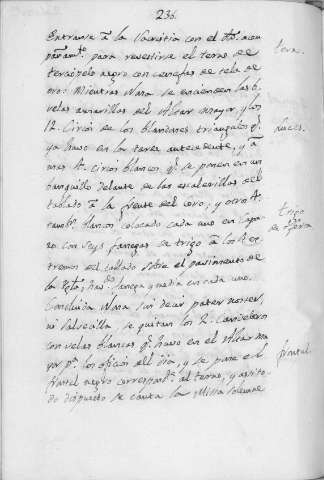 236.
Entrarse a la Sacristia con el mismo acom
pañam.to para revestirse el terno de
terciopelo negro con cenefas de tela de
oro: Mientras Nona se encienden las 6.
velas amarillas del Altar mayor, y los
12. Cirios de los blandones triangulos q.e
ya huvo en la tarde antecedente, y a
mas 4. cirios blancos q.e se ponen en un
banquillo delante de las escalerillas del
tablado a la frente del coro, y otros 4.
tamb.n blancos colocado cada uno en
con seys fanegas de trigo a los 4. ex
tremos del tablado sobre el pavimento de
la Ygl.a, fanega y media en cada uno.
Concluida Nona sin decir pater noster,
ni Salvecilla, se quitan los 2. Candeleros
con velas blancas q.e huvo en el Altar ma
yor p.a los oficios del dia, y se pone el
frontal negro correspond.te al terno, y assi to
do dispuesto se canta la Missa solemne
terno.
luces.
trigo
de ofrenda
frontal